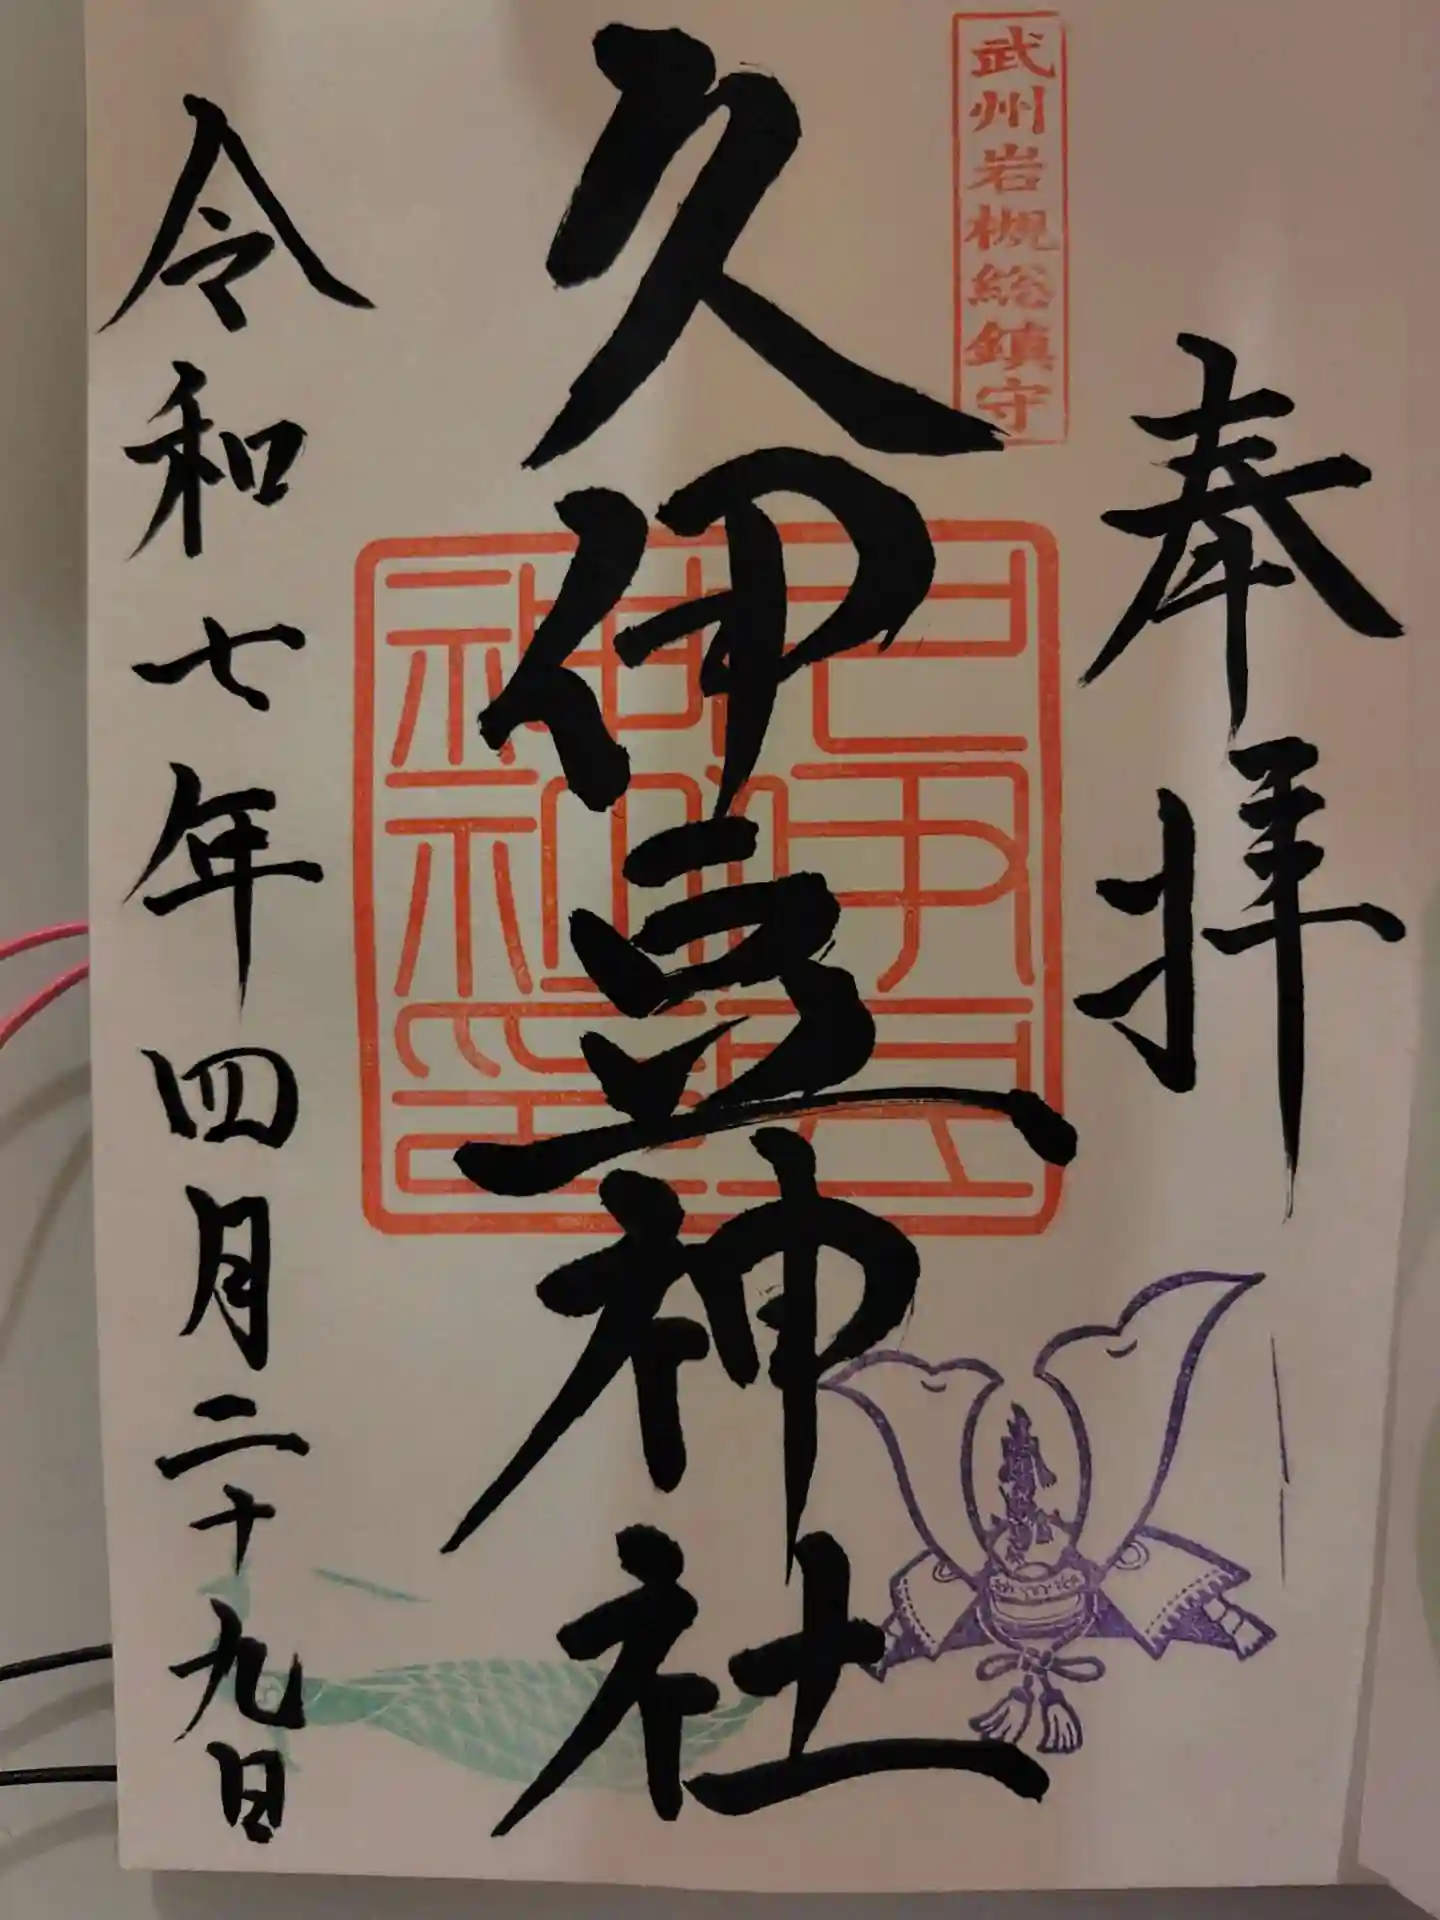 奉拝
武州岩槻総鎮守
久伊豆神社
久伊豆
神社印
令和七年四月二十九日